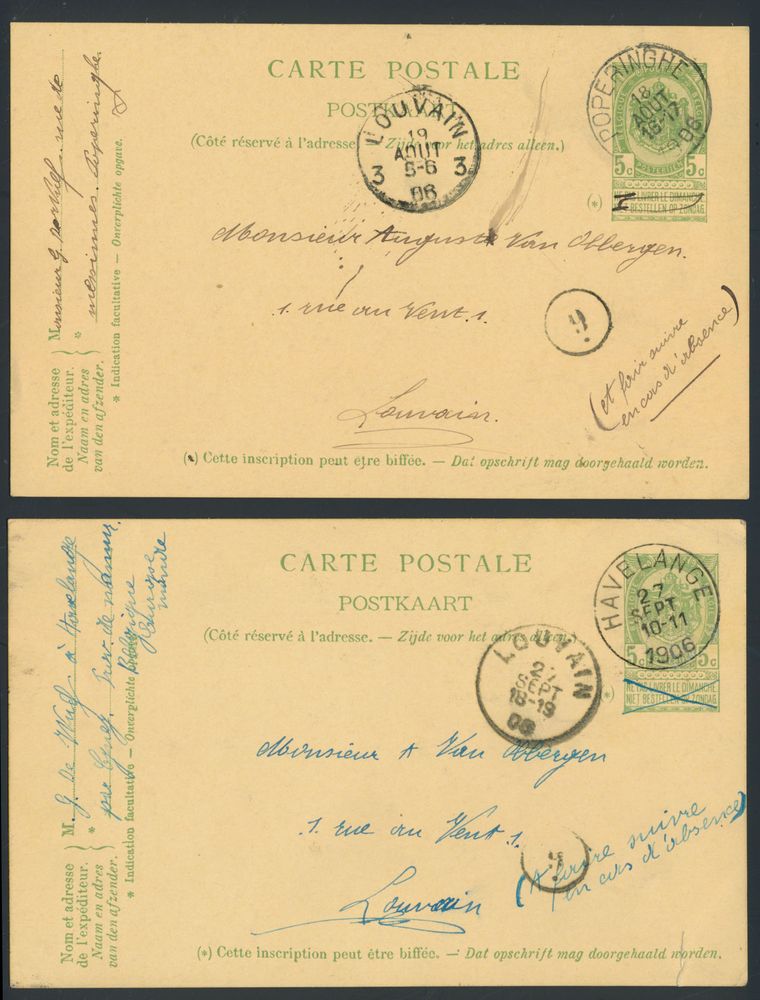 CARTE POSTALE
POSTKAART
(Côté réservé à l'adresse. — Zijde voor het adres alleen.)
LOUVAIN
19
AOUT
5-6
3 3
06
POPERINGHE
18
AOUT
16-17
1906
5c 5c
NE PAS LIVRER LE DIMANCHE
NIET BESTELLEN OP ZONDAG.
(*)
Monsieur August Van Obbergen.
1. rue au Vent. 1.
9
Louvain.
(et faire suivre
en cas d'absence)
(*) Cette inscription peut être biffée. — Dat opschrift mag doorgehaald worden.
Nom et adresse
de l'expéditeur.
Naam en adres
van den afzender.
Monsieur G. rue de
messines. Poperinghe.
*
* Indication facultative — Onverplichte opgave.
CARTE POSTALE
POSTKAART
(Côté réservé à l'adresse. — Zijde voor het adres alleen.)
LOUVAIN
27
SEPT
18-19
06
HAVELANGE
27
SEPT
10-11
1906
5c 5c
NE PAS LIVRER LE DIMANCHE.
NIET BESTELLEN OP ZONDAG.
(*)
Monsieur A Van Obbergen
1. rue au Vent 1.
Louvain
(et faire suivre
en cas d'absence)
(*) Cette inscription peut être biffée. — Dat opschrift mag doorgehaald worden.
Nom et adresse
de l'expéditeur.
Naam en adres
van den afzender.
M. G. de Wulf à Havelange
par Ciney. Prov. de Namur.
Belgique
*
* Indication facultative — Onverplichte opgave.